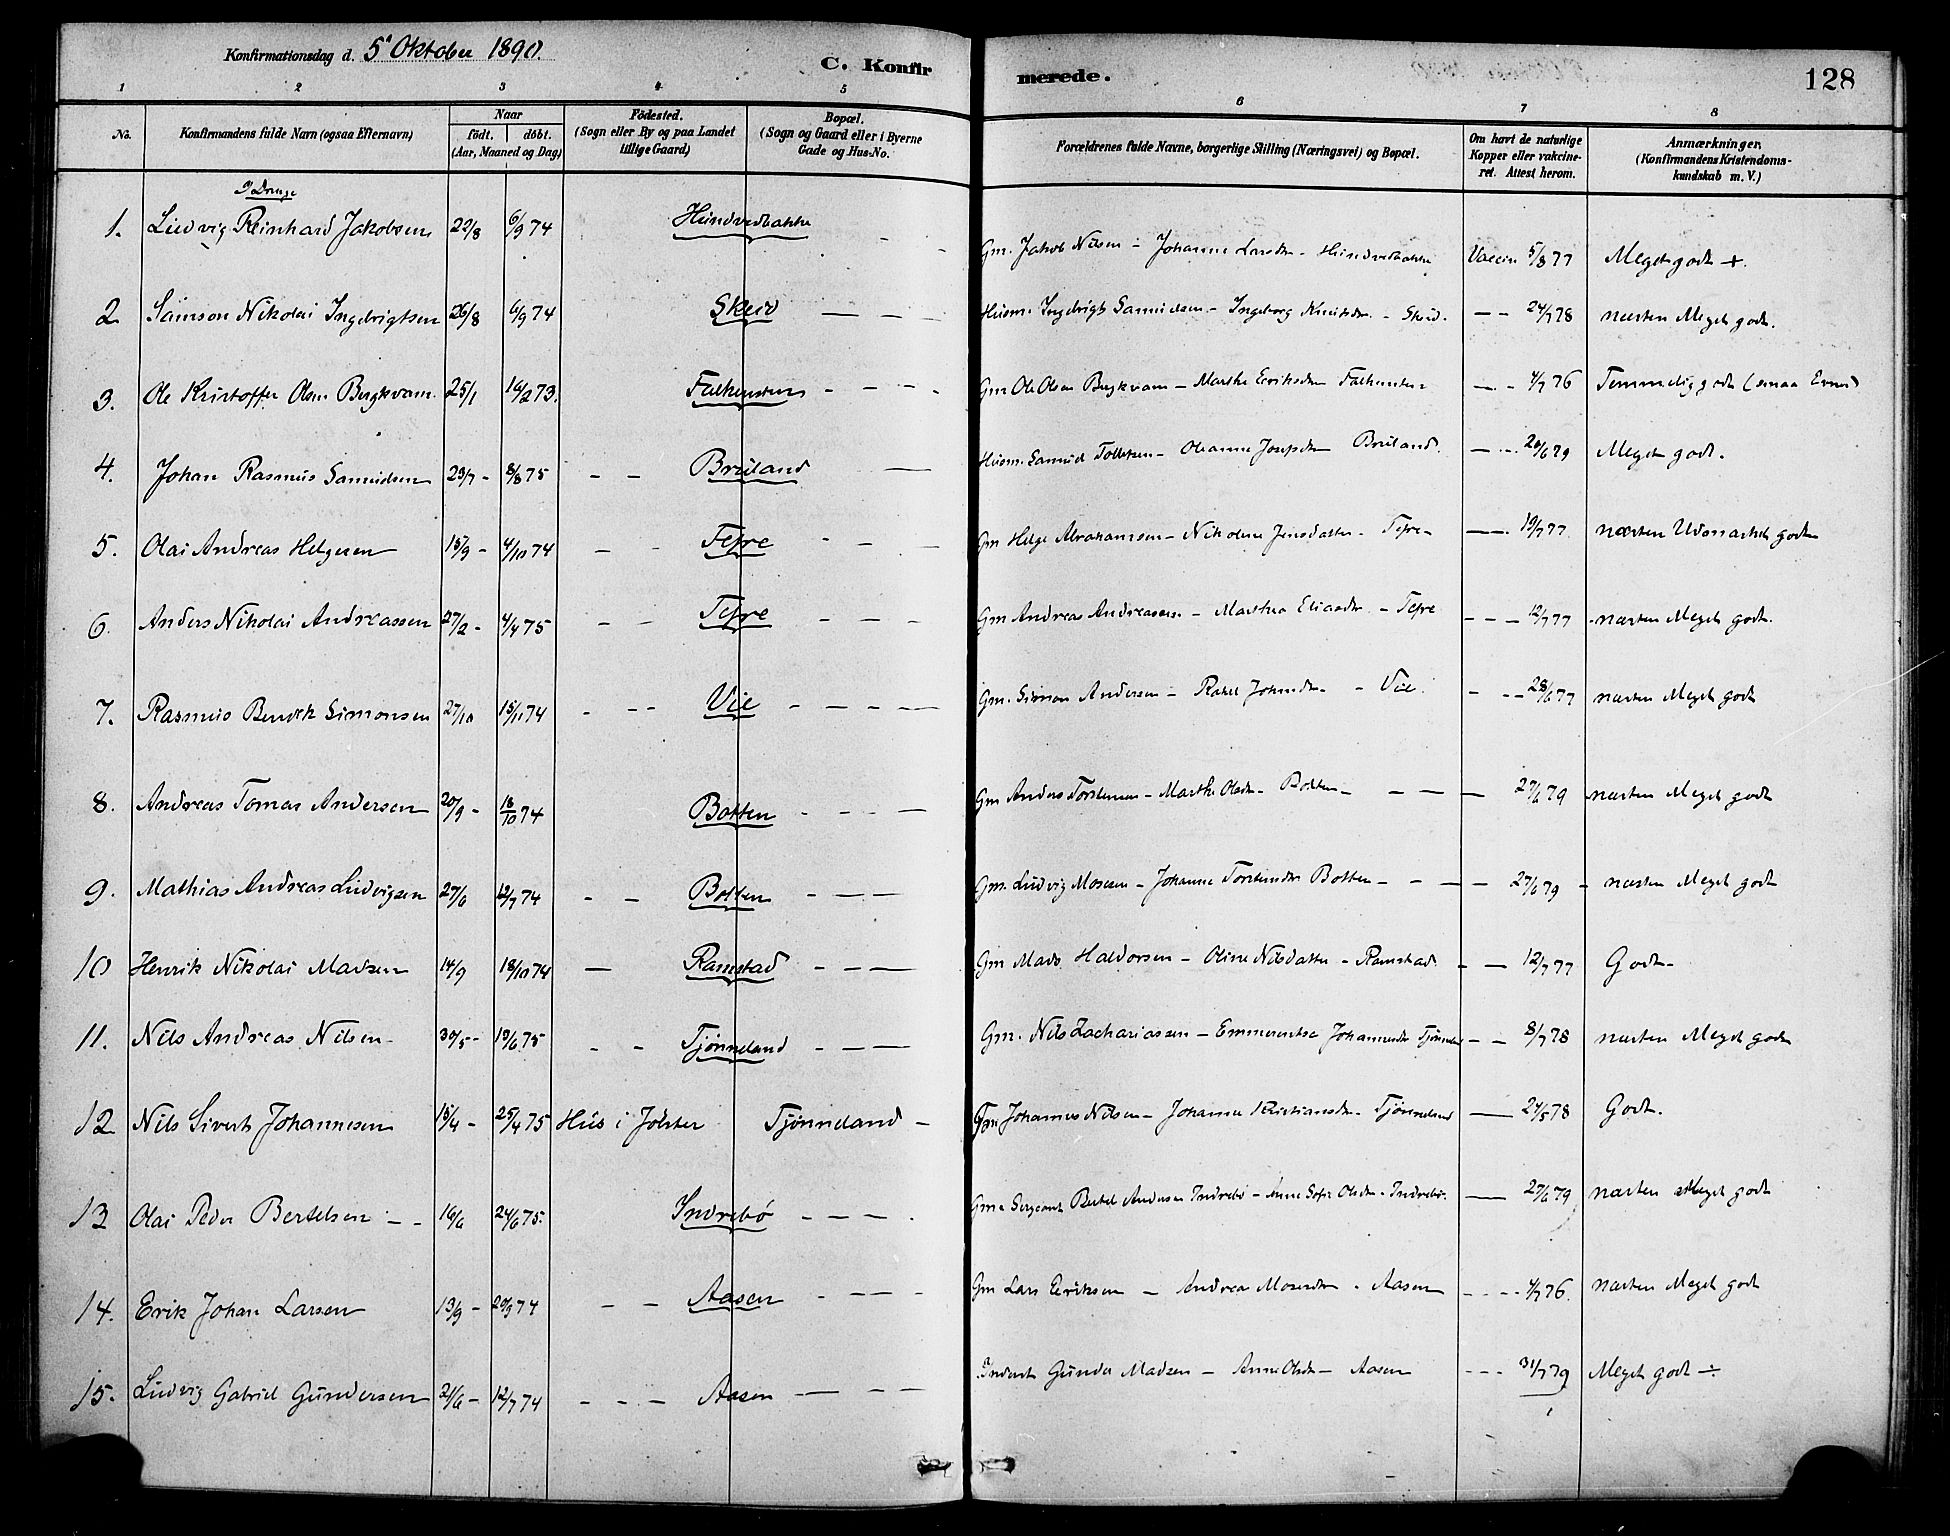 Konfirmationsdag d. 5' Oktober 1890.
C. Konfirmerede.
128
1 2 3 4 5 6 7 8
No. Konfirmandens fulde Navn (ogsaa Efternavn) Naar født. døbt. (Aar, Maaned og Dag) Fødested. (Sogn eller By og paa Landet tillige Gaard) Bopæl. (Sogn og Gaard eller i Byerne Gade og Hus-No. Forældrenes fulde Navne, borgerlige Stilling (Næringsvei) og Bopæl. Om havt de naturlige Kopper eller vakcineret. Attest herom. Anmærkninger. (Konfirmandens Kristendomskundskab m. V.)
Drenge
1. Ludvig Reinhard Jakobsen 22/8 6/9 74 Hundvedbakke Gm. Jakob Nilsen - Johanne Larsdtr - Hundvedbakke Vaccin 5/8 77 Meget godt +.
2 Samson Nikolai Ingebrigtsen 26/8 6/9 74 Skeid — - - Husm. Ingebrigt Samuelsen - Ingeborg Knutsdtr - Skeid. - - 24/7 78 næsten Meget godt.
3. Ole Kristoffer Olsen Bergkvam 25/1 16/2 73. Falkensten - - - Gm Ole Olsen Bergkvam - Marthe Eriksdtr Falkensten - - 4/7 76 Temmelig godt (smaa Evner)
4. Johan Rasmus Samuelsen 23/7 - 8/8 75 - - Bruland — Husm. Samuel Tollefsen - Oleanne Josefsdtr Bruland. - - 20/6 79 Meget godt.
5. Olai Andreas Helgesen 15/9 - 4/10 74 - - Tefre - - - Gm Helge Abrahamsen - Nikoline Jensdatter - Tefre - — 19/7 77 næsten Udmærket godt
6. Anders Nikolai Andreassen 27/2 - 4/4 75 - - Tefre - - - Gm Andreas Andreassen - Marthea Eliasdtr - Tefre - - - 12/7 77 næsten Meget godt.
7. Rasmus Bendik Simonsen 27/10 15/11 74 - - - Vie - - - — Gm. Simon Andersen - Rakel Johnsdtr - - Vie. - - - 28/6 77 næsten Meget godt
8. Andreas Tomas Andersen 20/9 - 18/10 74 Botten - - - — Gm Anders Torstensen - Marthe Olsdtr - Botten - - — — 27/6 79 næsten Meget godt
9. Mathias Andreas Ludvigsen 27/6 12/7 74 - - Botten - — — Gm. Ludvig Mosesen - Johanne Torstensdtr Botten - - — - 27/6 79 - næsten Meget godt
10 Henrik Nikolai Madsen 14/9 18/10 74 — Ramstad - — — Gm Mads Haldorsen - Oline Nilsdatter - Ramstad. - — 12/7 77 Godt -
11. Nils Andreas Nilsen - 30/5 - 13/6 75 - - Tjønneland - — — Gm. Nils Zachariassen - Emmerentse Johannesdtr Tjønneland - - 8/7 78 næsten Meget godt
12 Nils Sivert Johannesen 15/4 - 25/4 75 Hus i Jølster Tjønneland - Gm Johannes Nilsen - Johanne Kristiansdtr - Tjønneland — 24/5 78 Godt.
13 Olai Peder Bertelsen - - 16/6 24/6 75. Indrebø - - - . Gm & Sergeant Bertel Andersen Indrebø - Anne Sofie Olsdtr - Indrebø. — 27/6 79 næsten Meget godt
14. Erik Johan Larsen 13/9 - 20/9 74 - - Aasen - — — - Gm Lars Eriksen - Andrea Mosesdtr - Aasen - - - 4/7 76. næsten Meget godt
15. Ludvig Gabriel Gundersen 21/6 - 12/7 74 - - - Aasen — - - Inderst Gunder Madsen - Anne Olsdtr - Aasen - - - 31/7 79 Meget godt ÷